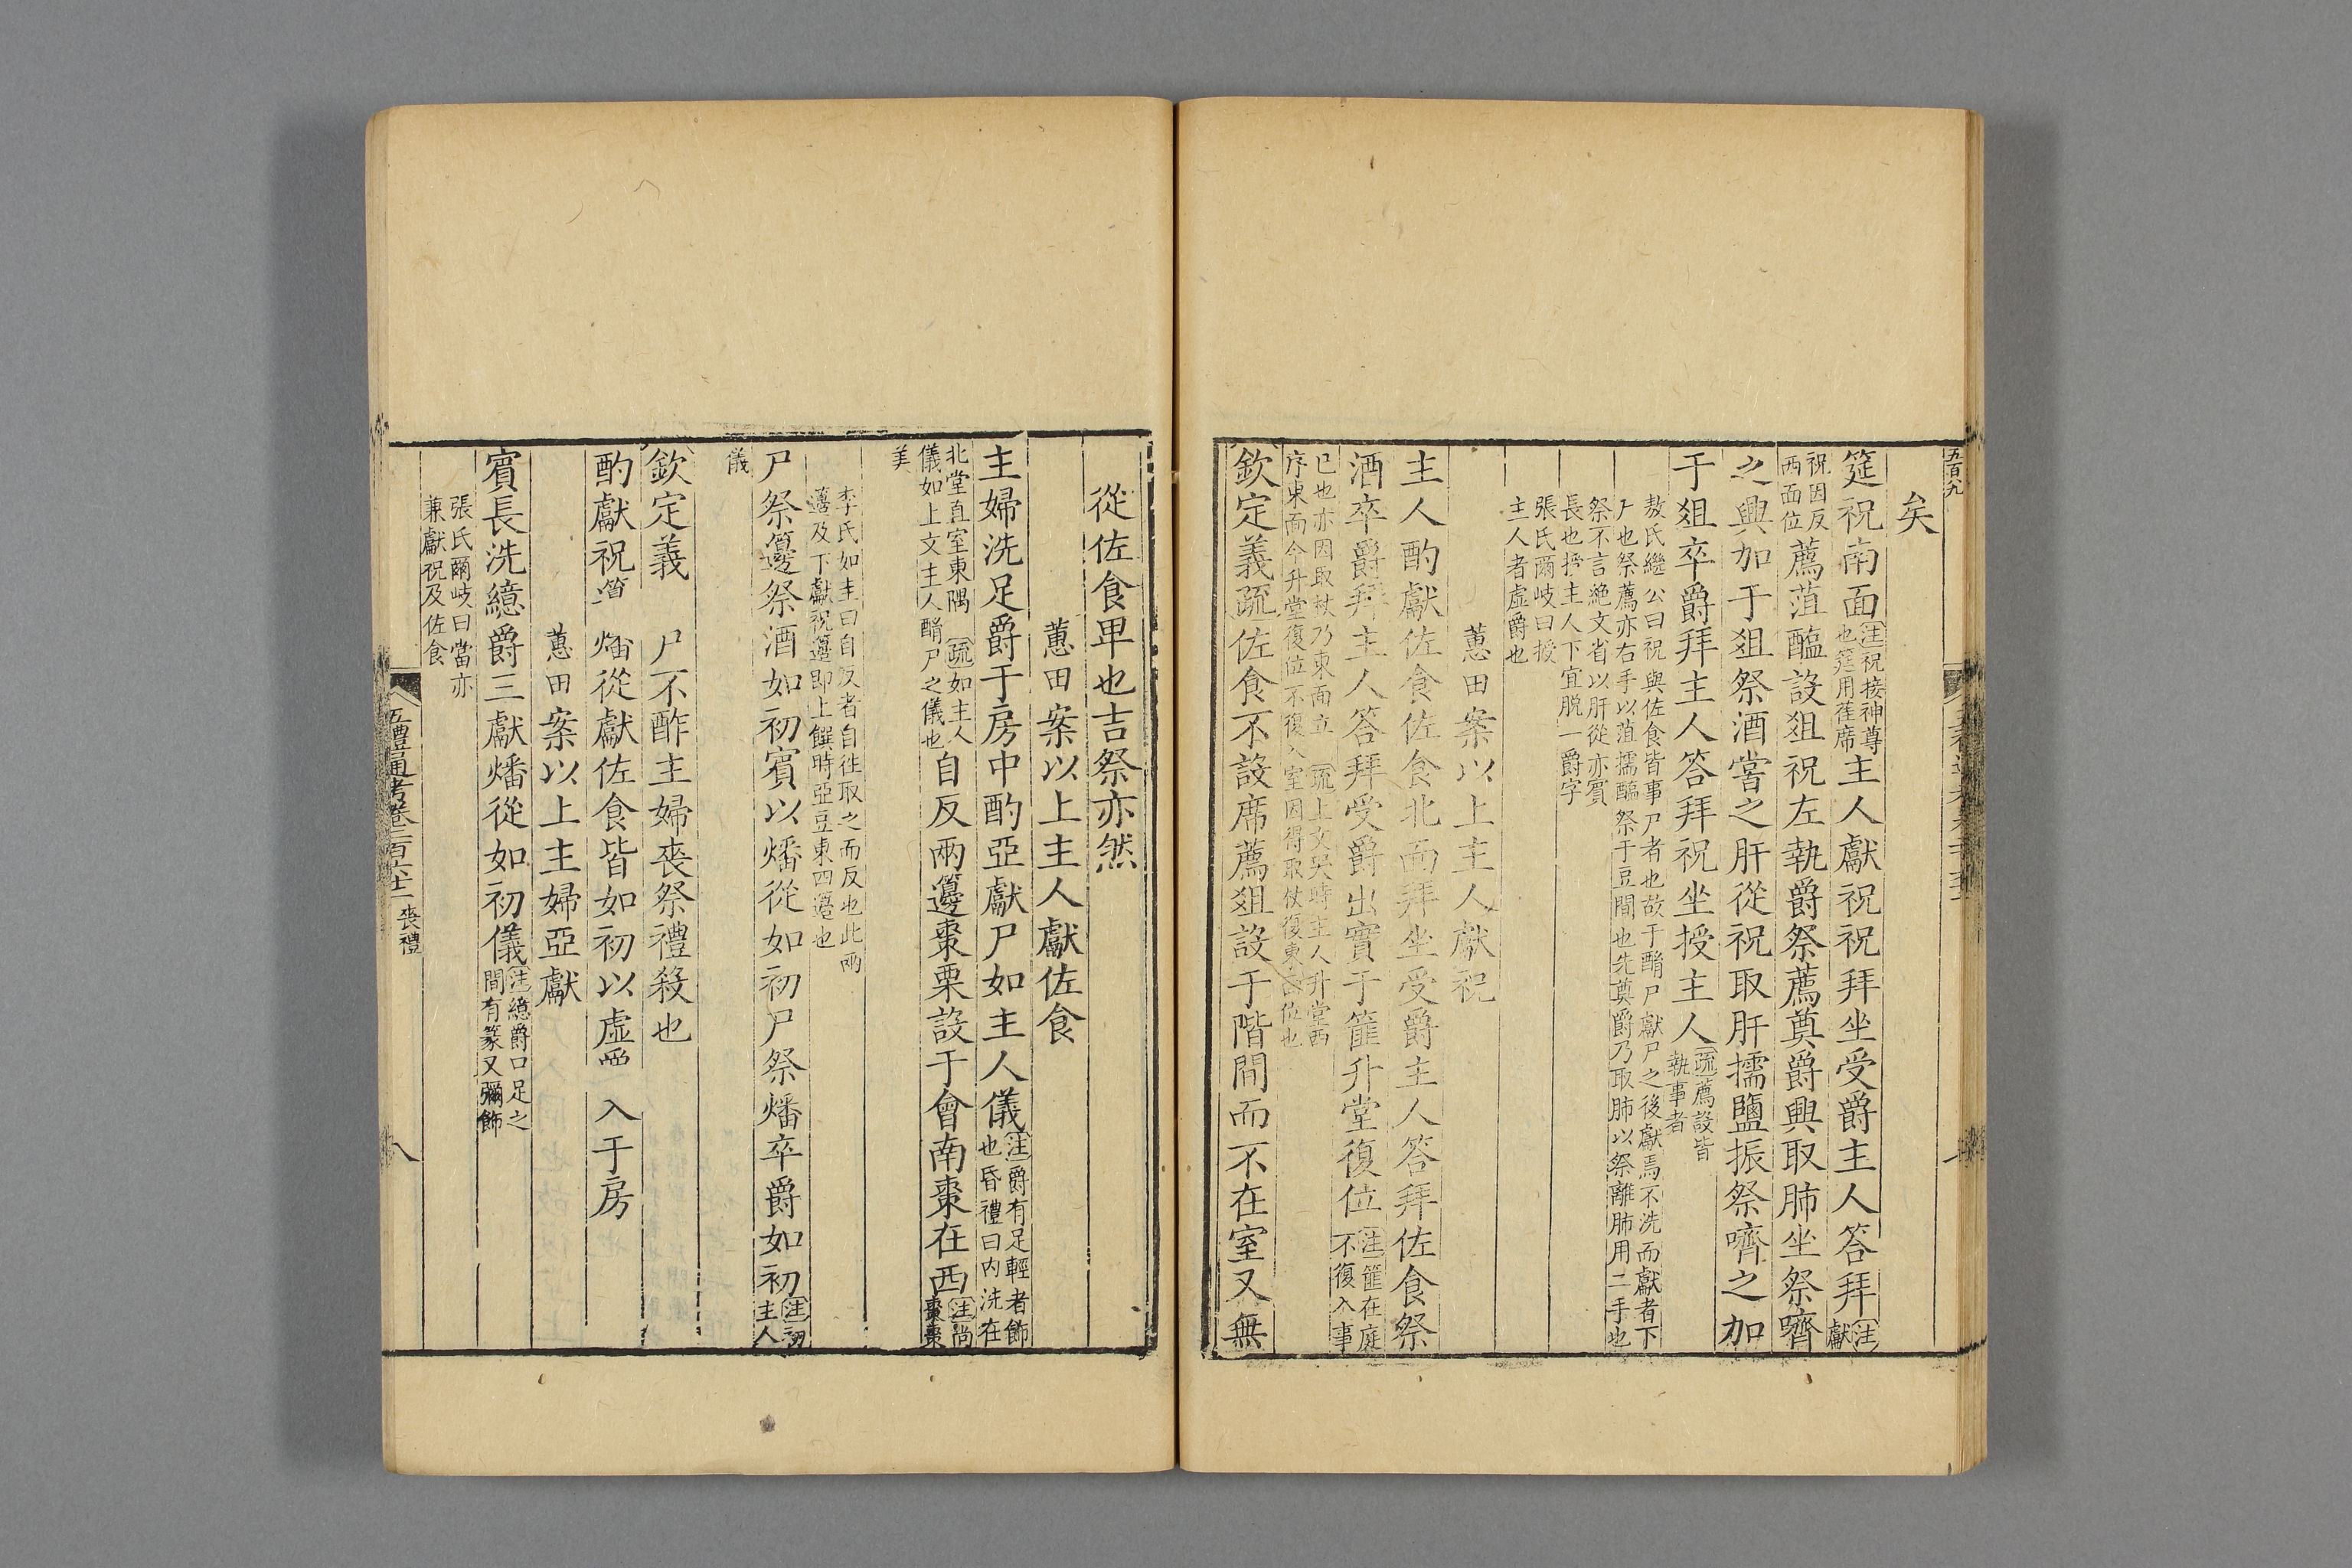 五百九
矣
筵祝南面注祝接神尊也筵用萑席主人獻祝祝拜坐受爵主人答拜注獻
祝因反西面位薦菹醢設俎祝左執爵祭薦奠爵興取肺坐祭嚌
之興加于俎祭酒嘗之肝從祝取肝擩鹽振祭嚌之加
于俎卒爵拜主人答拜祝坐授主人疏薦設皆執事者
敖氏繼公曰祝與佐食皆事尸者也故于酳尸獻尸之後獻焉不洗而獻者下
尸也祭薦亦右手以菹擩醢祭于豆間也先奠爵乃取肺以祭離肺用二手也
祭不言絶文省以肝從亦賓
長也授主人下宜脱一爵字
張氏爾岐曰授
主人者虛爵也
蕙田案以上主人獻祝
主人酌獻佐食佐食北面拜坐受爵主人答拜佐食祭
酒卒爵拜主人答拜受爵出實于篚升堂復位注篚在庭不復入事
已也亦因取杖乃東面立疏上文哭時主人升堂西
序東面今升堂復位不復入室因得取杖復東面位也
欽定義疏佐食不設席薦俎設于階間而不在室又無
從佐食卑也吉祭亦然
蕙田案以上主人獻佐食
主婦洗足爵于房中酌亞獻尸如主人儀注爵有足輕者飾也昏禮曰内洗在
北堂直室東隅疏如主人儀如上文主人酳尸之儀也自反兩籩棗栗設于會南棗在西注尚棗棗
美
李氏如圭曰自反者自往取之而反也此兩
籩及下獻祝籩即上饌時亞豆東四籩也
尸祭籩祭酒如初賓以燔從如初尸祭燔卒爵如初注初主人
儀
欽定義 尸不酢主婦喪祭禮殺也
酌獻祝 燔從獻佐食皆如初以虛 入于房
蕙田案以上主婦亞獻
賓長洗繶爵三獻燔從如初儀注繶爵口足之間有篆又彌飾
張氏爾岐曰當亦
兼獻祝及佐食
五禮通考卷二百六十一 喪禮 八